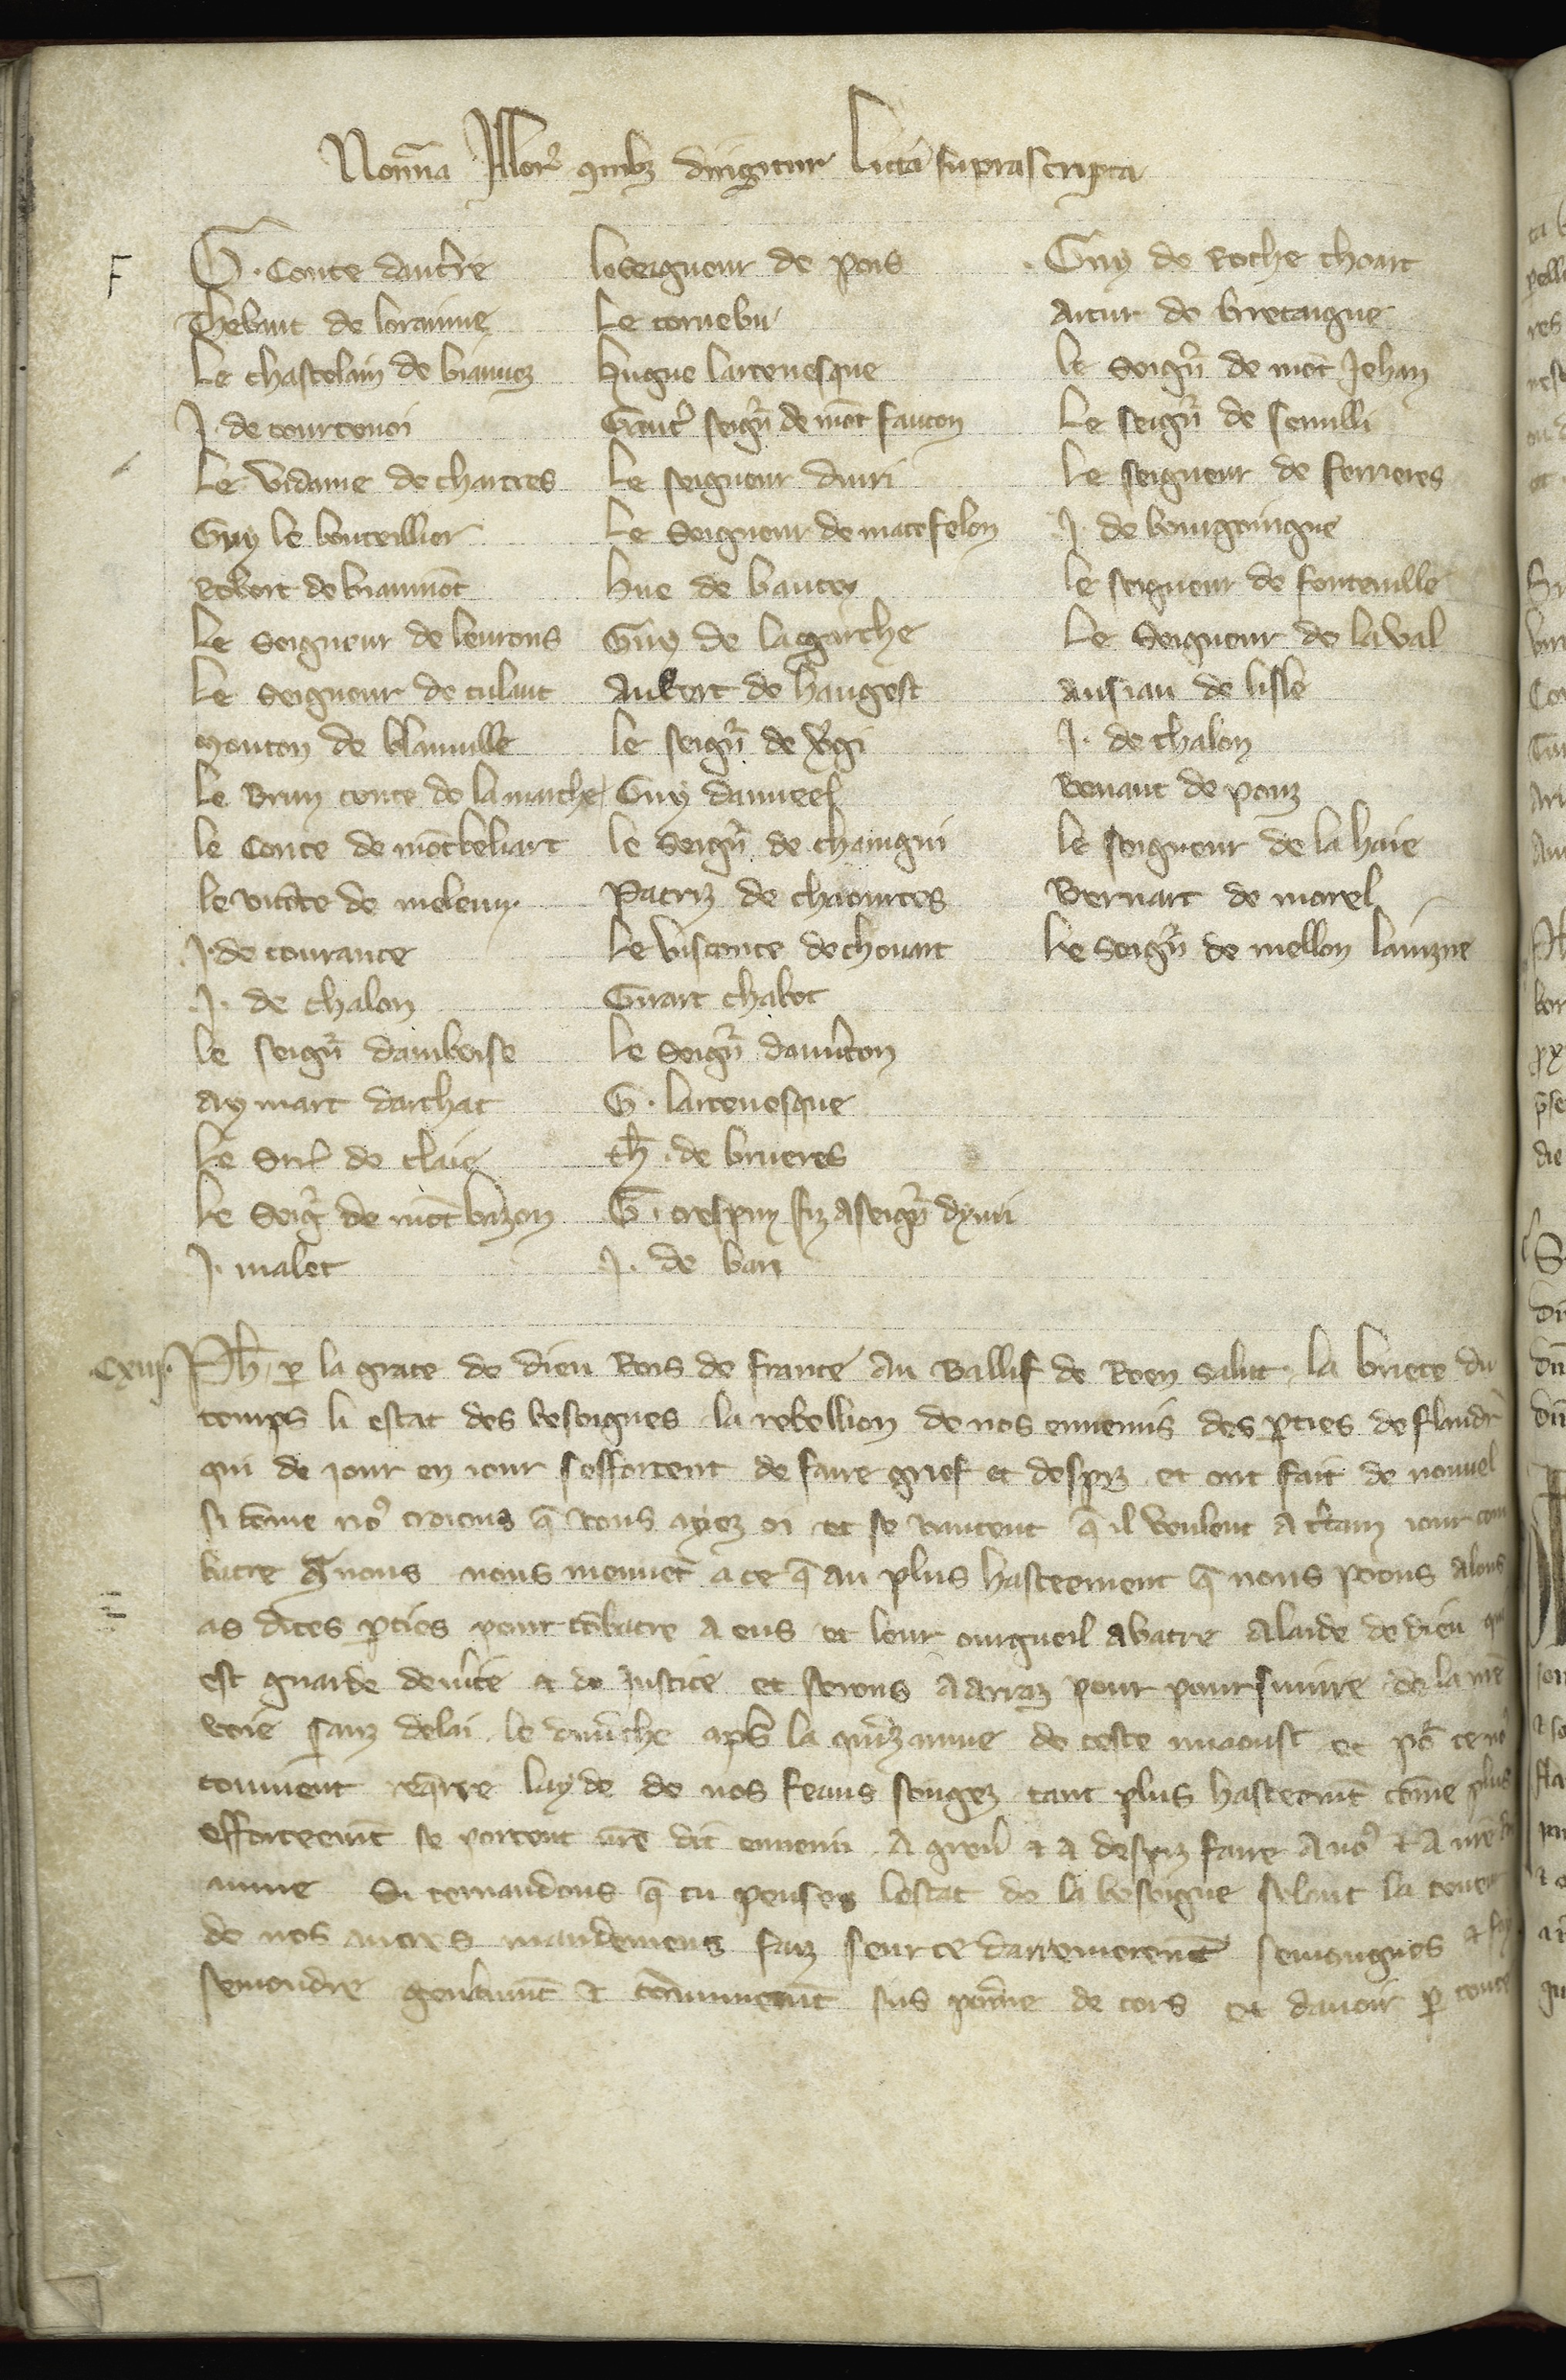 Noīna Illor quibz dirigitur littā suprascripta
F
G. Conte daucrre
Thebaut de lorainne
Le chastelain de biauvez
J. de courtenoi
Le vidame de chartres
Guy le bouteillier
Robert de biaumōt
Le Seigneur de leurons
Le Seigneur de culant
mouton de blainville
Le Brun conte de la marche
le Conte de mōtbeliart
le vicōte de meleun.
J. de courance
J. de chalon
le seign̄ damboise
Aymart darchac
Le Sire de claie
Le Seig de mōt bazon
J. malet
le Seigneur de pois
Le tornebu
hugue larcevesque
Gauc̄ seign̄ de mōt faucon
Le seigneur divri
Le Seigneur de matefelon
hue de baucey
Guy de la garche
Aubert de hangest
le seign̄ de v̄gi
Guy dauneel
le Seign̄ de chauigni
Patriz de chaources
Le visconte de chouart
Girart chabot
Le Seign̄ daumc̄on
G. larcevesque
th̄. de brueres
G. crespin fiz a seign̄ dyvri
J. de bari
Guy de Roche choart
Artur de bretaigne
le Seign̄ de mōt Jehan
Le seign̄ de semilli
Le seigneur de ferrieres
J. de bourgoingne
le seigneur de fonteville
Le Seigneur de laval
ansiau de lisle
J. de chalon
Renaut de ponz
le seigneur de la haie
Bernart de morel
Le Seign̄ de mellon lainzne
Cxiiij. Ph̄. p la grace de dieu Rois de france au Ballif de Roen salut. la briete du
temps li estat des besoignes la rebellion de nos ennemis des pties de flandr̄
qui de iour en iour sefforcent de faire grief et despiz et ont fait de nouvel
si cōme no⁹ croions q̄ vous ayez oi et se vantent q̄ il veulent a c̄tain iour com
batre a nous nous meuvēt a ce q̄ au plus hasteement q̄ nous poons alons
as dites pties pour cōbatre a eus et leur orgueil abatre alaide de dieu qui
est guarde de v̄ite et de justice et serons a arraz pour poursuivre de la nr̄e
voie sanz delai le dim̄che aps la quīzainne de ceste miaoust et pō ce no⁹
convient req̄rre layde de nos feaus songez tant plus hasteemt̄ cōme plus
efforceemt̄ se portent nr̄e dit ennemi a grev̄ et a despiz faire a no⁹ et a nr̄e
aume Si cemandons q̄ tu penses lestat de la besoigne selonc la teneur
de nos autres mandemens faiz seur ce darreinierem̄t semoignes et fai
semondre gen̄aum̄t et cōmunem̄t sus poīne de cors et davoir p toute